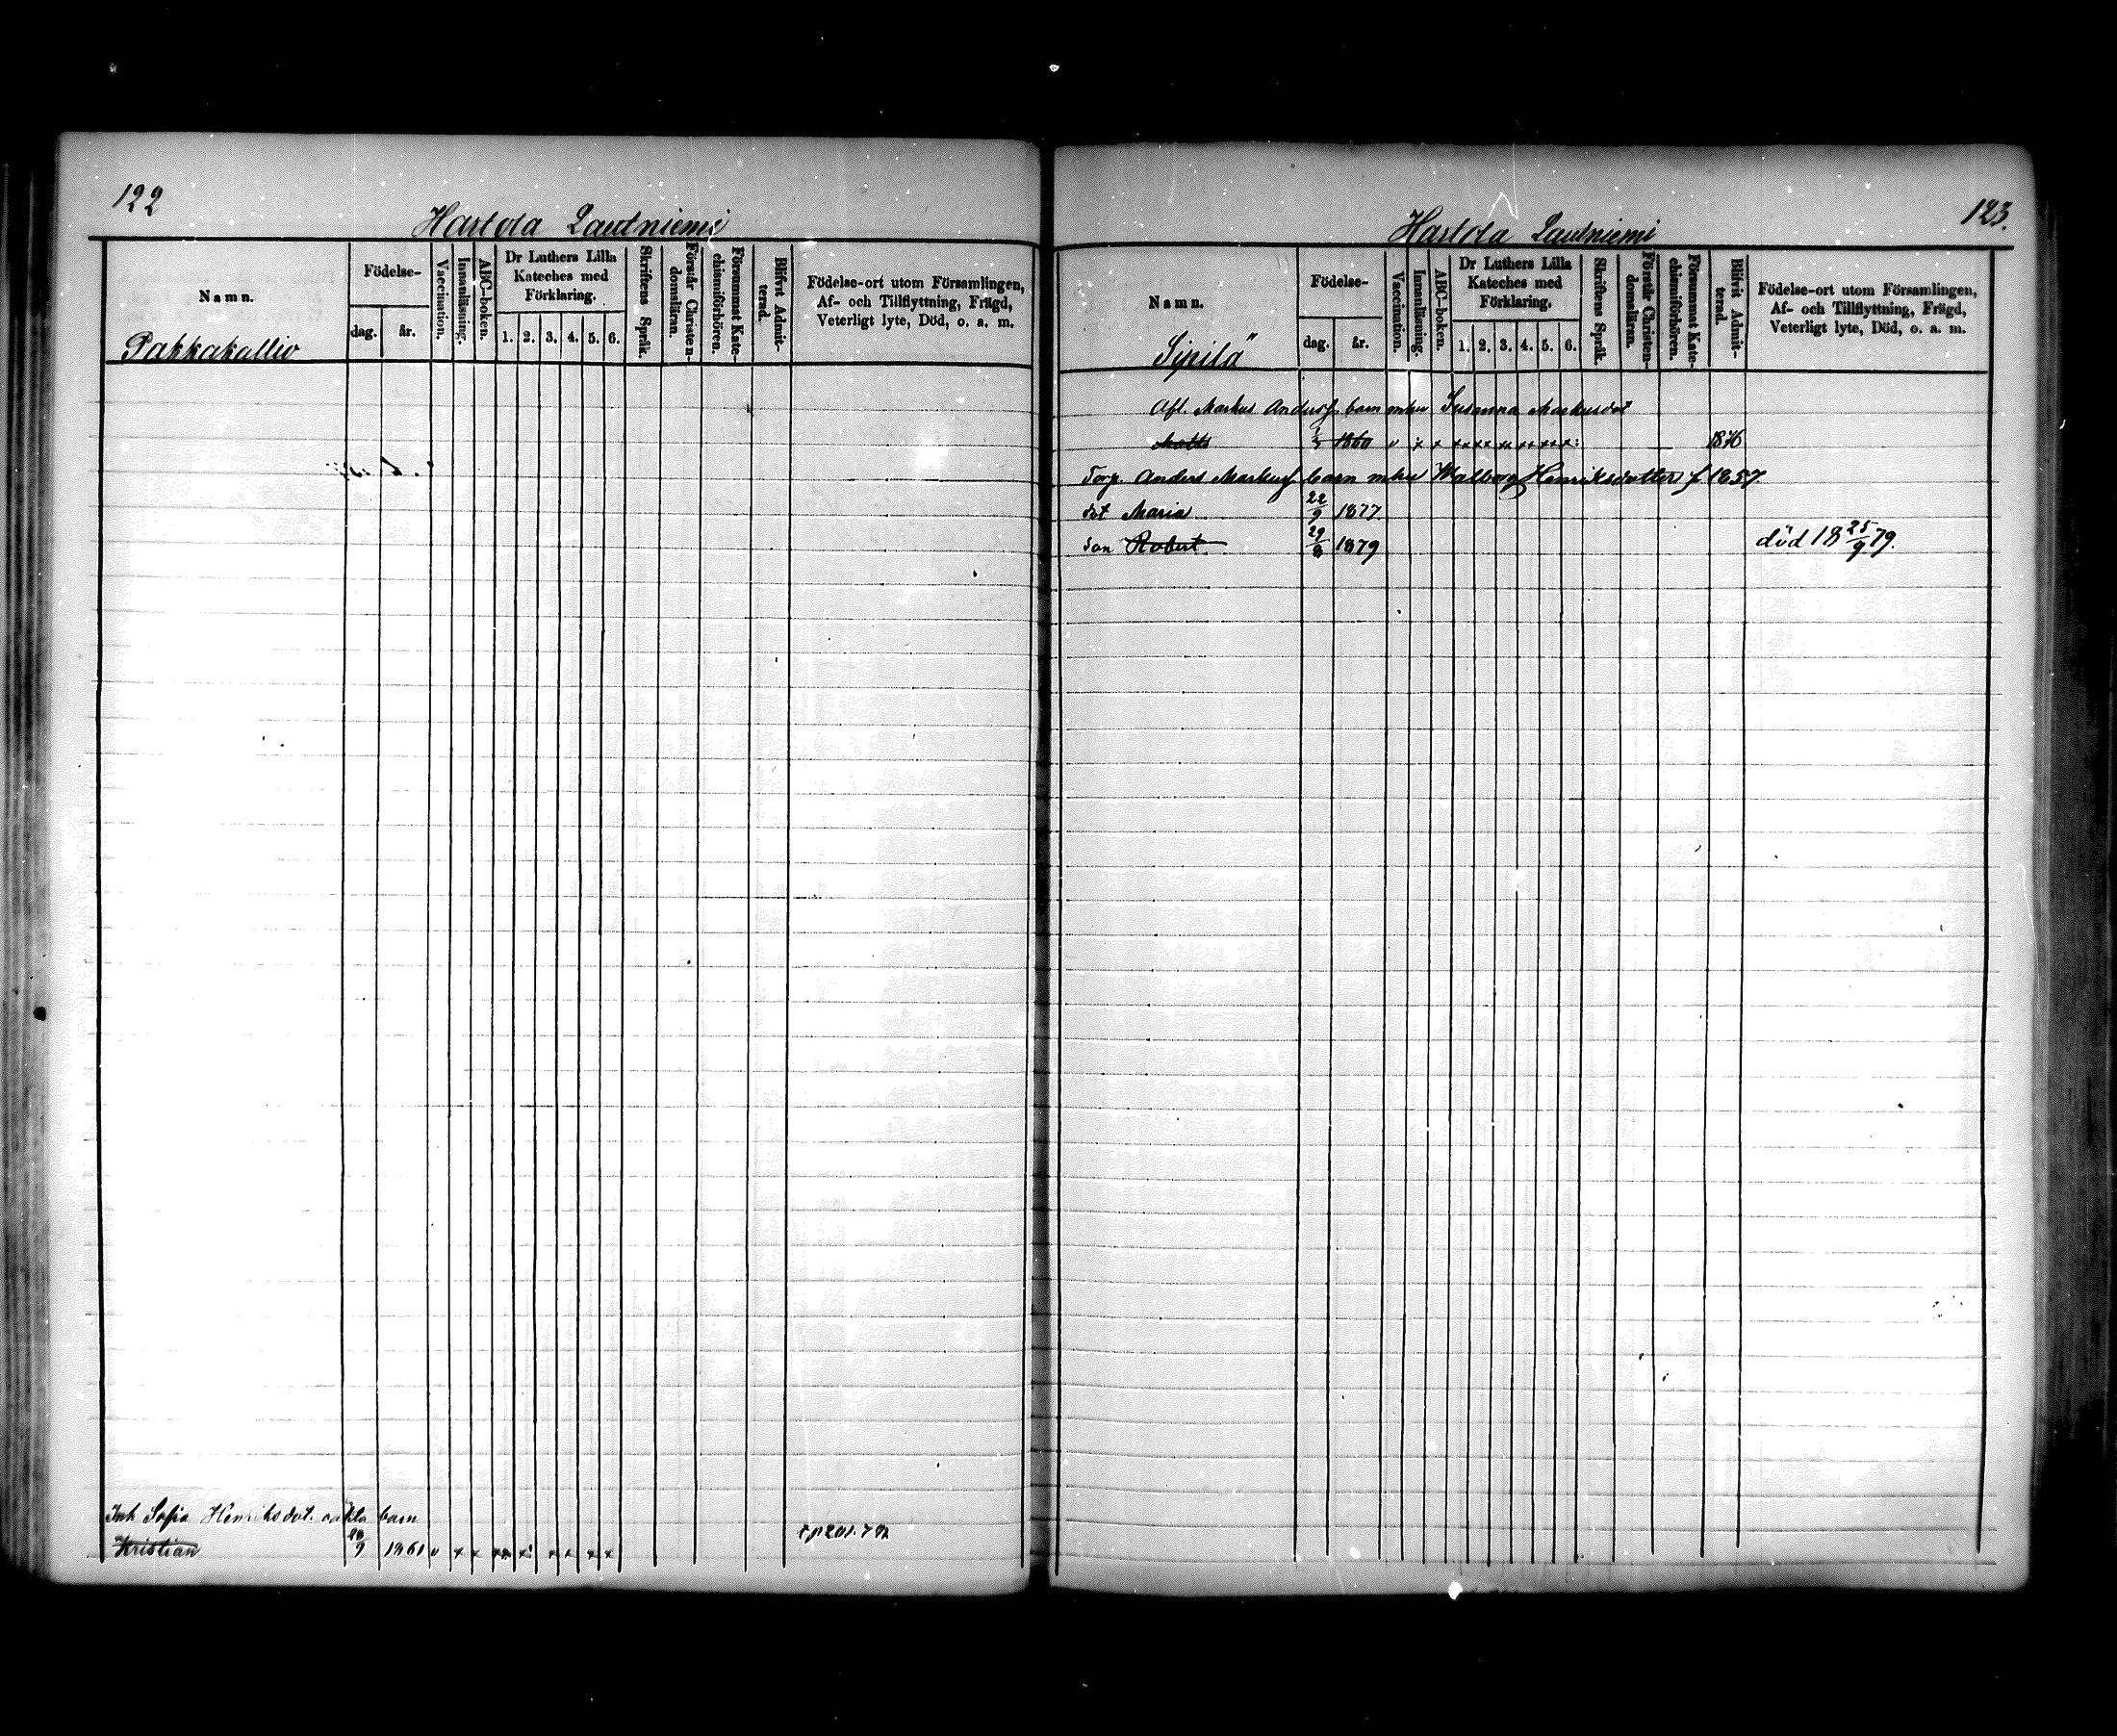 122
Hartola Lautniemi
Namn.
Födelse-
dag.
år.
Vaccination.
Innanläsning.
ABC-boken.
Dr Luthers Lilla
Kateches med
Förklaring.
1. 2. 3. 4. 5. 6.
Skriftens Språk.
Förstår Christen-
domsläran.
Försummat Kate-
chismiförhören.
Blifvit Admit-
terad.
Födelse-ort utom Församlingen,
Af- och Tillflyttning, Frägd,
Veterligt lyte, Död, o. a. m.
Pakkakallio
Inh Sofia Henriksdot. barn
Kristian 9 1861 v x x
123.
Hartola Lautniemi
Namn.
Födelse-
dag.
år.
Vaccination.
Innanläsning.
ABC-boken.
Dr Luthers Lilla
Kateches med
Förklaring.
1. 2. 3. 4. 5. 6.
Skriftens Språk.
Förstår Christen-
domsläran.
Försummat Kate-
chismiförhören.
Blifvit Admit-
terad.
Födelse-ort utom Församlingen,
Af- och Tillflyttning, Frägd,
Veterligt lyte, Död, o. a. m.
Sipilä
Afl. Markus Andersf. barn mhu Susanna Markusdot
Matts 1860 v x x 1876
Torp. Anders Markusf barn mhu Walborg Henriksdotter f 1857
dot Maria 22/9 1877.
son Robert 29/8 1879 död 18 25/9 79.